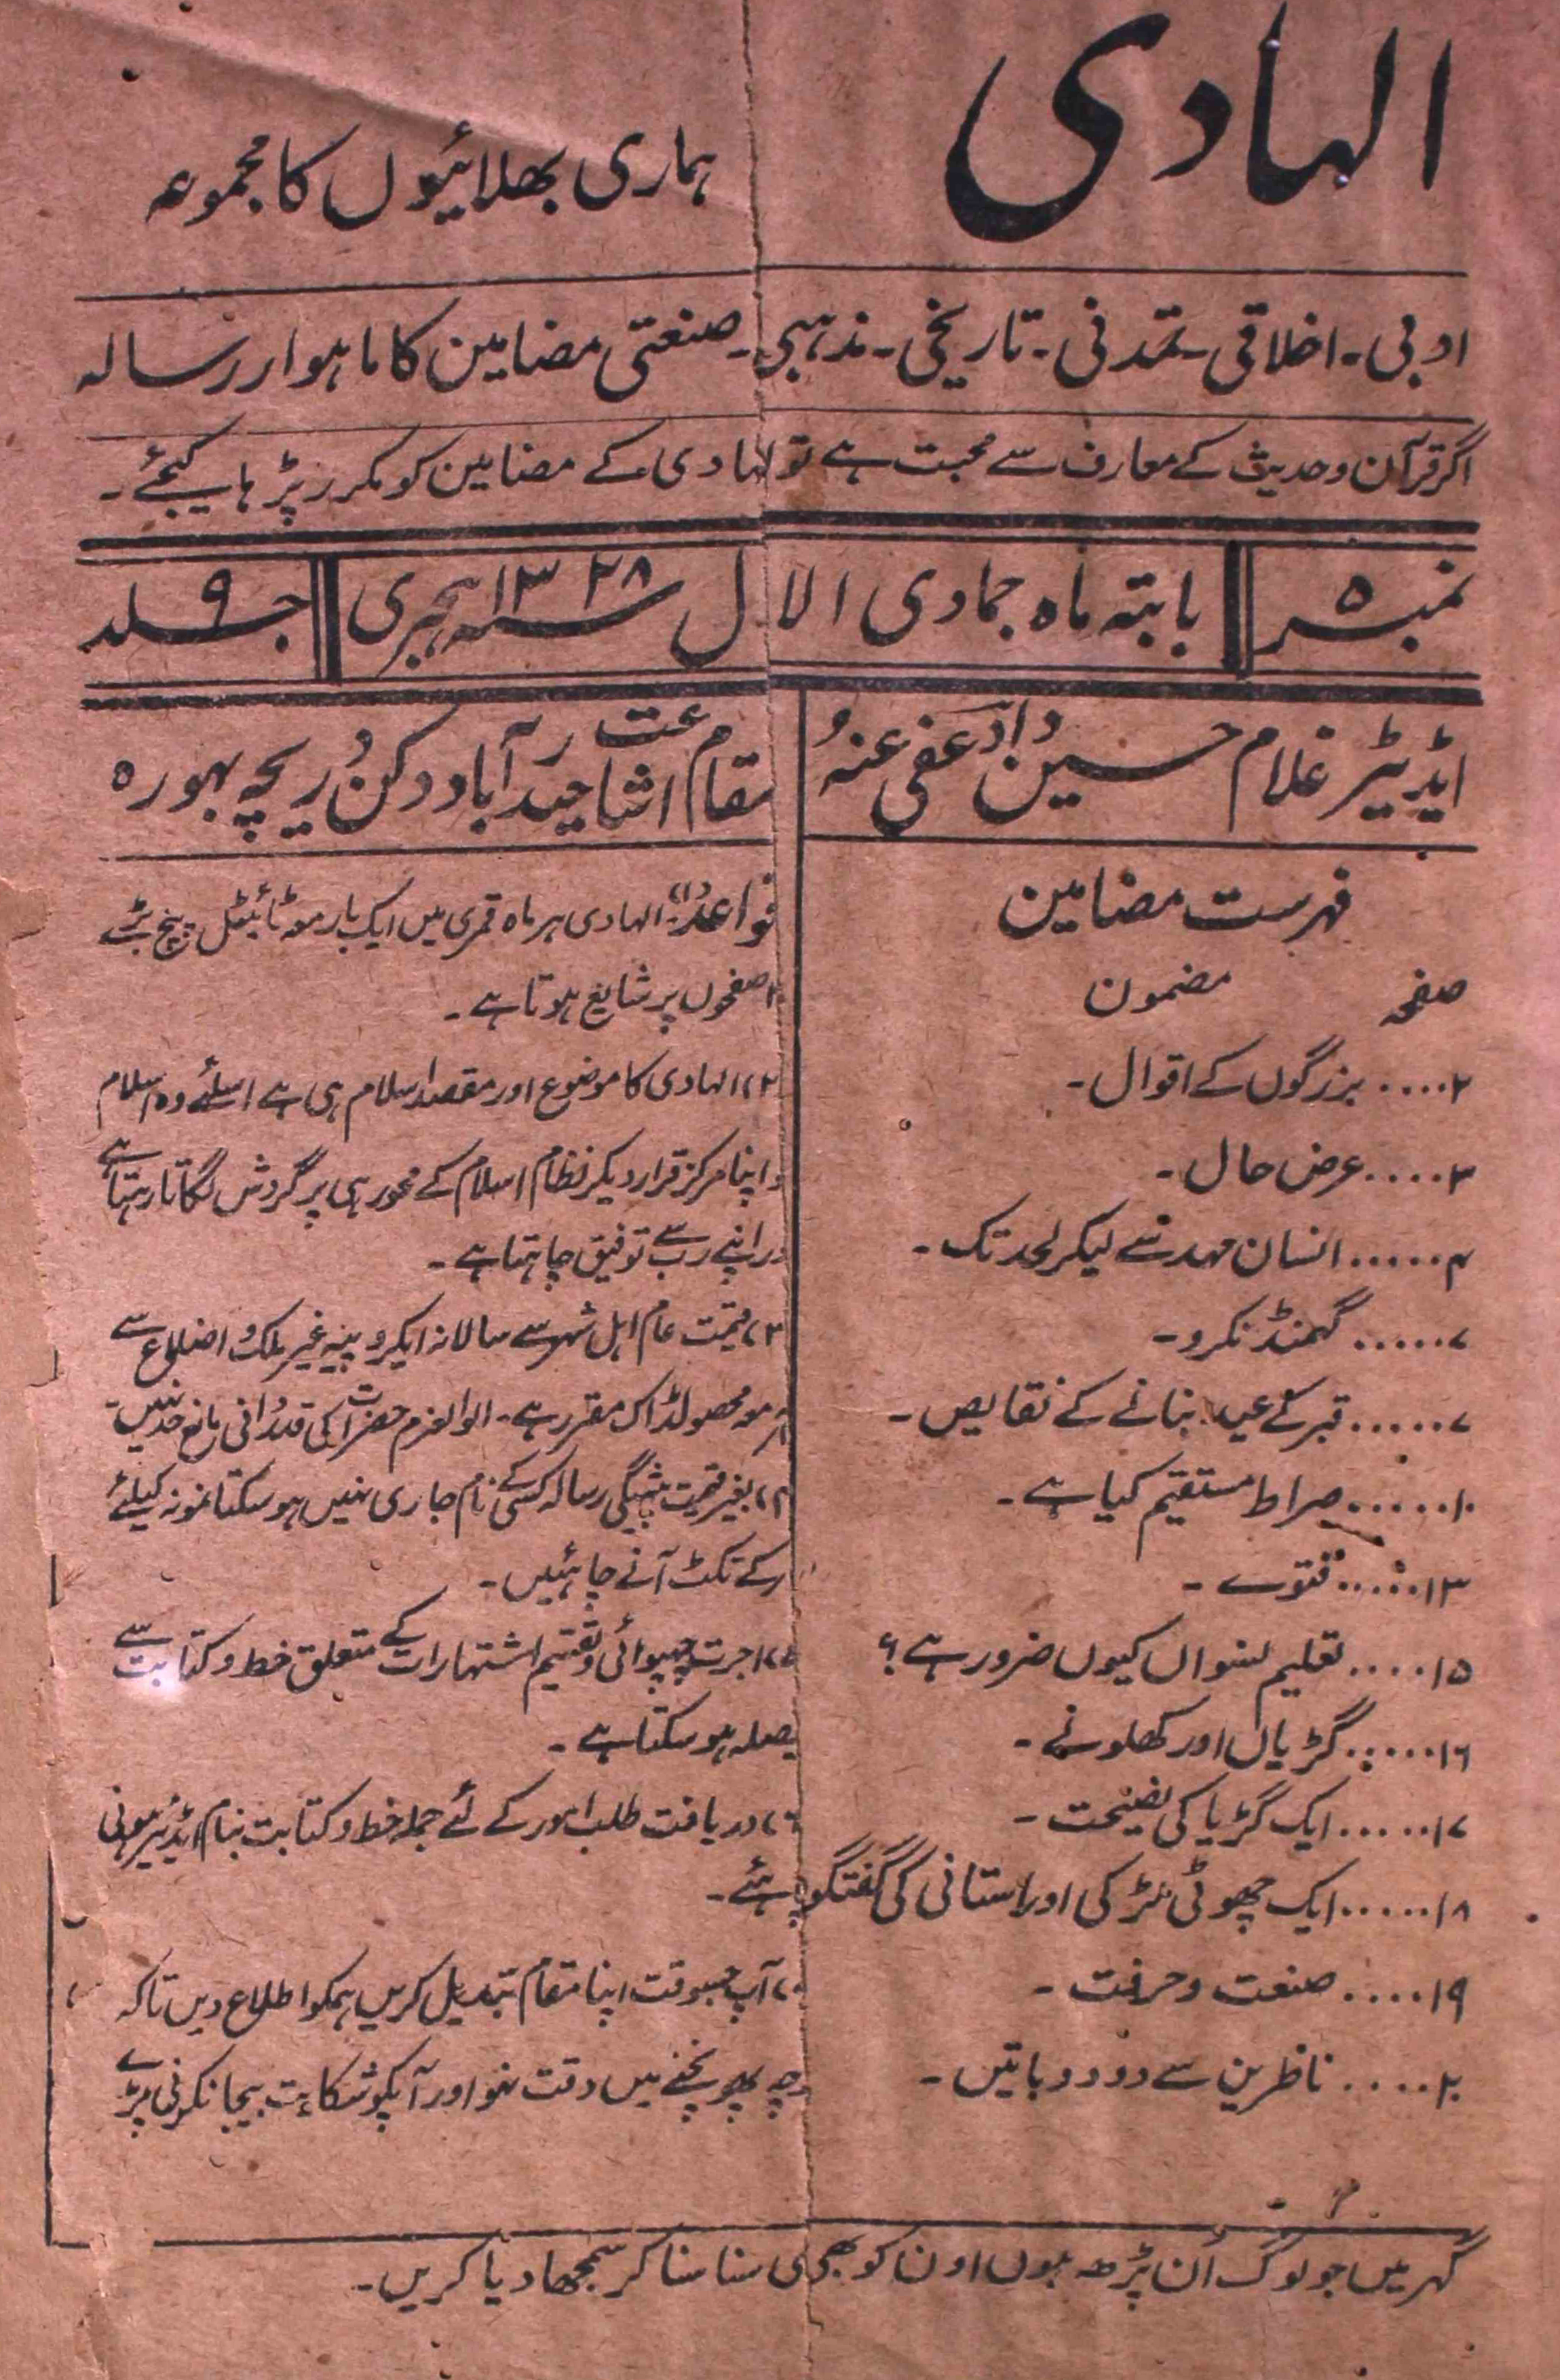 الہادی
ہماری بھلائیوں کا مجموعہ
ادبی۔ اخلاقی۔ تمدنی۔ تاریخی۔ مذہبی۔ صنعتی مضامین کا ماہوار رسالہ
اگر قرآن وحدیث کے معارف سے محبت ہے تو الہادی کے مضامین کو مکرر پڑہا کیجئے۔
نمبر ۵
بابتہ ماہ جمادی الاول ۱۳۲۸ ہجری
جلد ۹
ایڈیٹر غلام حسین داؤد عفی عنہ
مقام اشاعت حیدرآباد دکن دریچہ بہورہ
فہرست مضامین
صفحہ مضمون
۲.... بزرگوں کے اقوال۔
۳.... عرض حال۔
۴..... انسان مہد سے لیکر لحد تک۔
۷..... گہمنڈ نکرو۔
۷..... قبر کے عید بنانے کے نقایص۔
۱۰..... صراط مستقیم کیا ہے۔
۱۳..... فتوے۔
۱۵.... تعلیم نسواں کیوں ضرور ہے؟
۱۶..... گڑیاں اور کھلونے۔
۱۷..... ایک گڑیا کی نصیحت۔
۱۸..... ایک چھوٹی لڑکی اور استانی کی گفتگو
۱۹.... صنعت وحرفت۔
۲۰.... ناظرین سے دو دو باتیں۔
قواعد (۱) الہادی ہر ماہ قمری میں ایک بار معہ ٹائیٹل پیج بڑے
صفحوں پر شایع ہوتا ہے۔
۲، الہادی کا موضوع اور مقصد اسلام ہی ہے اسلئے وہ اسلام
اپنا مرکز قرار دیکر نظام اسلام کے محور ہی پر گردش لگاتا رہتا ہے
اپنے رب سے توفیق چاہتا ہے۔
۳، قیمت عام اہل شہر سے سالانہ ایکروپیہ غیر ملک و اضلاع سے
معہ محصولڈاک مقرر ہے۔ الوالعزم حضرات کی قدردانی مانع حد نہیں
۴، بغیر قیمت پیشگی رسالہ کسی کے نام جاری نہیں ہوسکتا نمونہ کیلئے
کے ٹکٹ آنے چاہئیں۔
۵، اجرت چھپوائی و تقسیم اشتہارات کے متعلق خط و کتابت سے
یصلہ ہوسکتا ہے۔
۶، دریافت طلب امور کے لئے جملہ خط و کتابت بنام ایڈیٹر ہونی
چاہئے۔
۷، آپ جسوقت اپنا مقام تبدیل کریں ہمکو اطلاع دیں تاکہ
پرچہ پہونچنے میں دقت نہو اور آپکو شکایت بیجا نکرنی پڑے
گہر میں جو لوگ اَن پڑھ ہوں اون کو بھی سنا سنا کر سمجھا دیا کریں۔